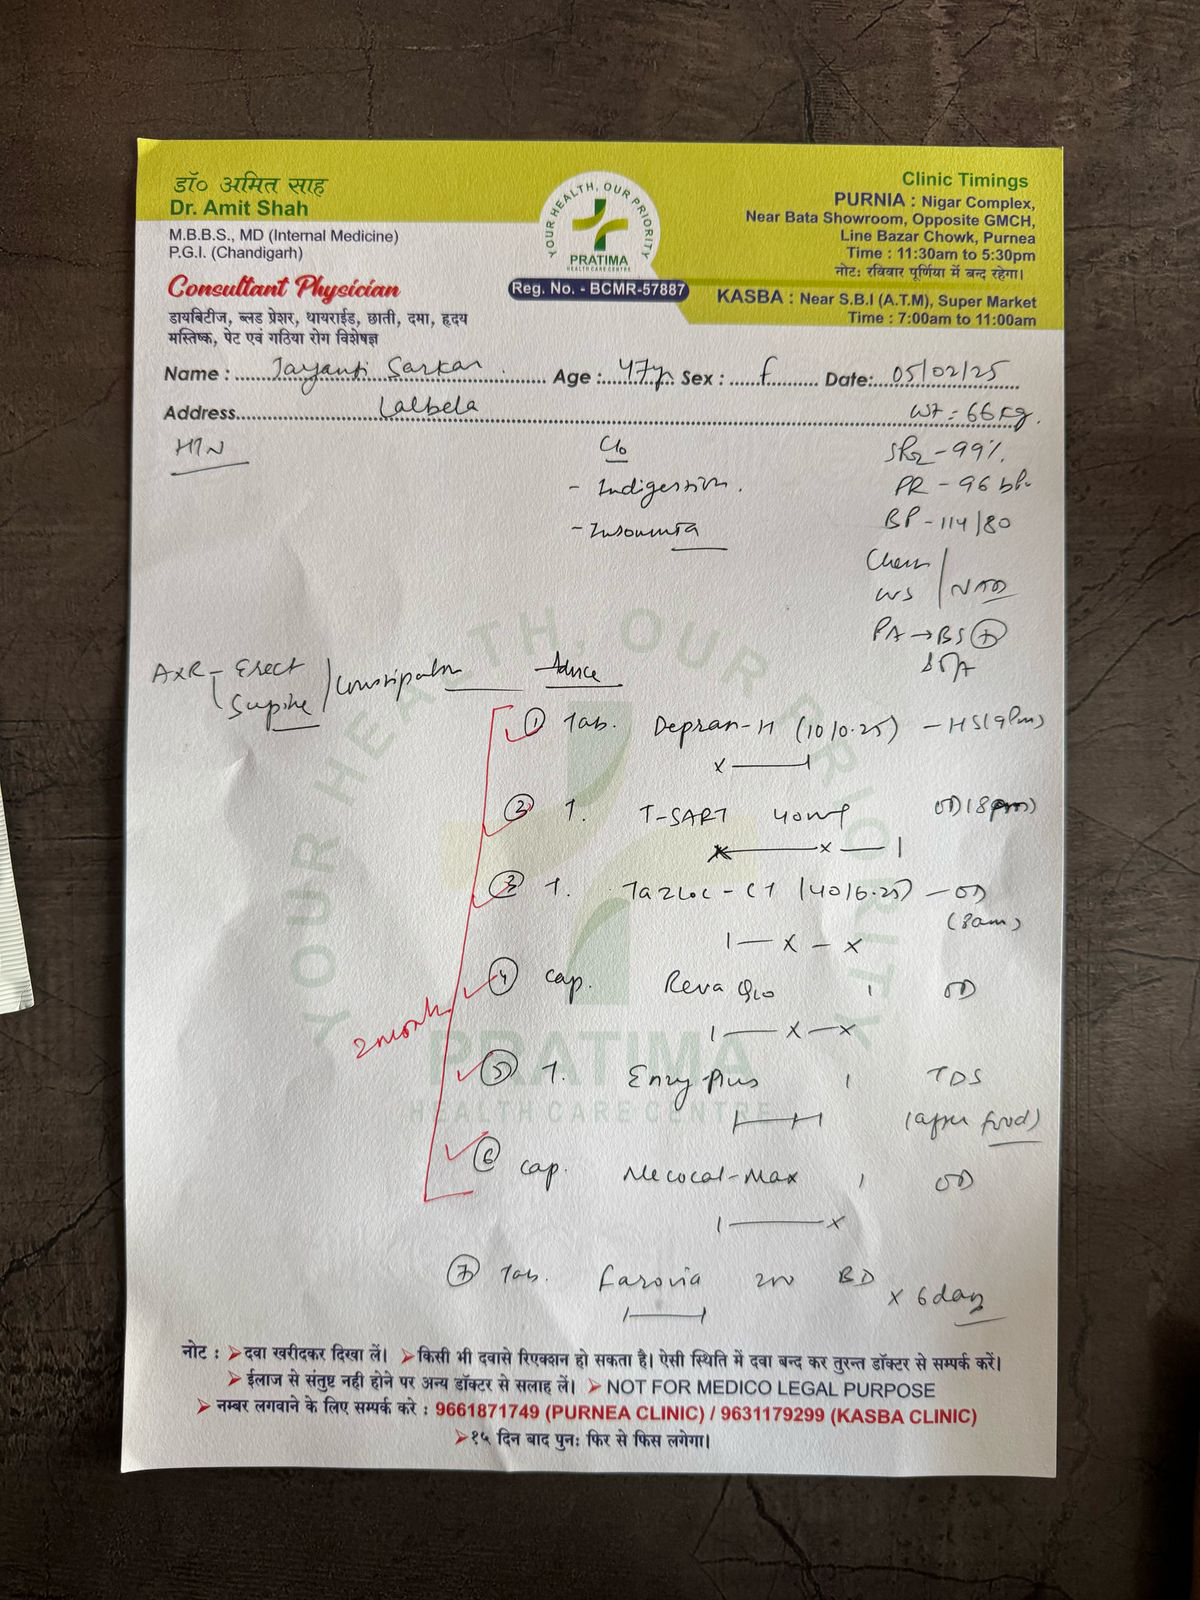 डॉ० अमित साह
Dr. Amit Shah
M.B.B.S., MD (Internal Medicine)
P.G.I. (Chandigarh)
Consultant Physician
डायबिटीज, ब्लड प्रेशर, थायराईड, छाती, दमा, हृदय
मस्तिष्क, पेट एवं गठिया रोग विशेषज्ञ
YOUR HEALTH, OUR PRIORITY
PRATIMA
HEALTH CARE CENTRE
Reg. No. - BCMR-57887
Clinic Timings
PURNIA : Nigar Complex,
Near Bata Showroom, Opposite GMCH,
Line Bazar Chowk, Purnea
Time : 11:30am to 5:30pm
नोट: रविवार पूर्णिया में बन्द रहेगा।
KASBA : Near S.B.I (A.T.M), Super Market
Time : 7:00am to 11:00am
Name : Jayanti Sarkar Age : 47yr Sex : F Date: 05/02/25
Address Lalbela
Wt = 66 kg.
HTN
C/o
- Indigestion.
- Insomnia
SPO2 - 99%
PR - 96 
BP - 114/80
Chest
CVS / NAD
PA → BS +
AXR - Erect
Supine / Constipation
Advice
1 Tab. Depran-H (10/0.25) - HS (9pm)
x — 1
2 T. T-SART 40mg OD (8pm)
x — 1
3 T. Tazloc-CT (40/6.25) - OD
(8am)
1 — x — x
4 Cap. Reva Q10 1 OD
1 — x — x
5 T. Enzy Plus 1 TDS
(after food)
6 Cap. Mecocal-Max 1 OD
1 — x
2 month
7 Tab. Farovia 200 BD x 6 days
YOUR HEALTH, OUR PRIORITY
PRATIMA
HEALTH CARE CENTRE
नोट : ➤दवा खरीदकर दिखा लें। ➤किसी भी दवासे रिएक्शन हो सकता है। ऐसी स्थिति में दवा बन्द कर तुरन्त डॉक्टर से सम्पर्क करें।
➤ईलाज से संतुष्ट नही होने पर अन्य डॉक्टर से सलाह लें। ➤NOT FOR MEDICO LEGAL PURPOSE
➤नम्बर लगवाने के लिए सम्पर्क करे : 9661871749 (PURNEA CLINIC) / 9631179299 (KASBA CLINIC)
➤१५ दिन बाद पुनः फिर से फिस लगेगा।